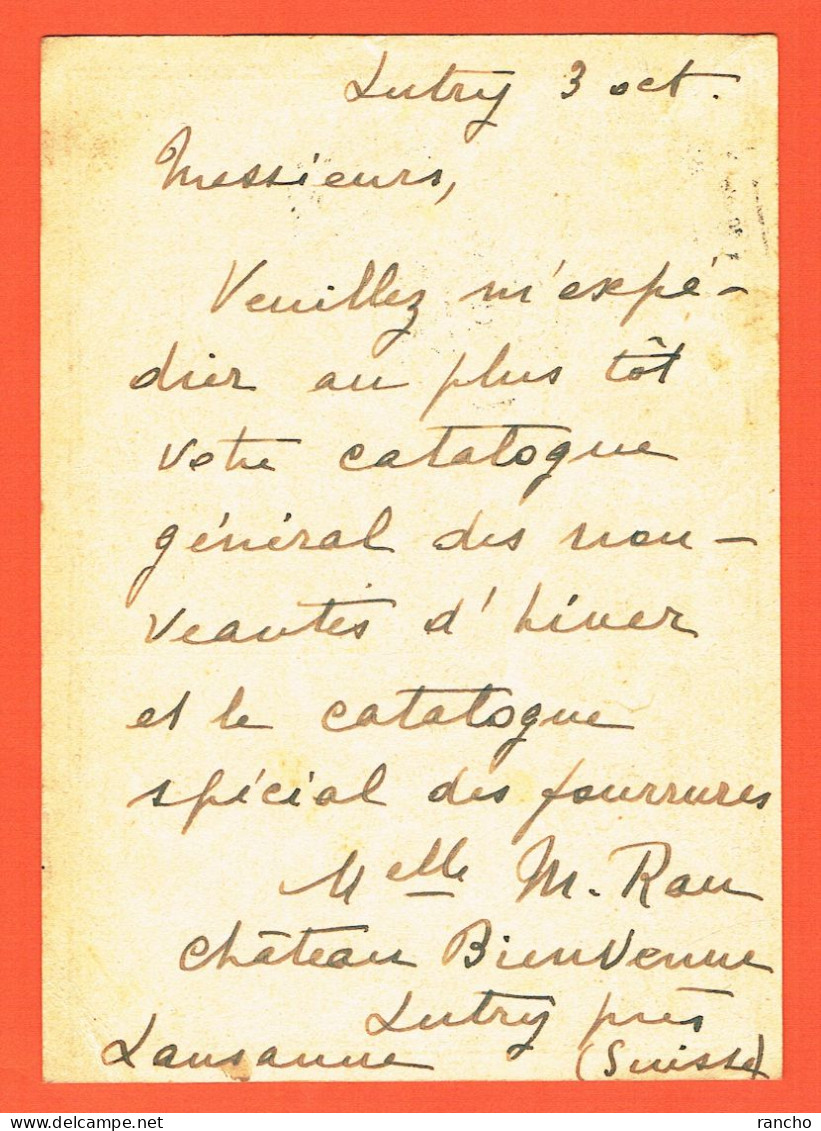 Lutry 3 oct.
Messieurs,
Veuillez m'expé-
dier au plus tôt
votre catalogue
général des nou-
veautés d'hiver
et le catalogue
spécial des fourrures
Melle M. Rau
Château Bienvenue
Lutry près
Lausanne (Suisse)
delcampe.net
rancho